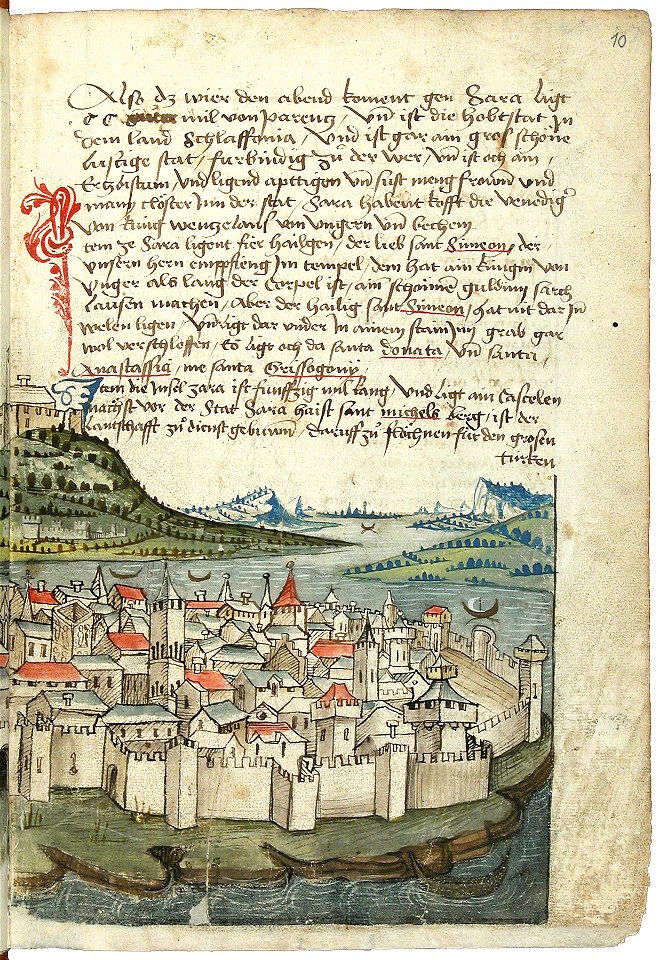 10
Also dz wier den abend koment gen Sara ligt
CC mil von parentz / Vnd ist die hobtstat In
dem land Schlaffonia / Vnd ist gar am gros schöne
lustige stat / furbindig zů der wer / vnd ist och ain
Ertzbistum / vnd ligend apttigen vnd sust meng frowen vnd
many closter Inn der stat / Sara habent kofft die venediger
von kung wentzelaus von vngern vnd bechem
tem ze Sara ligent fier hailgen / der lieb sant Simeon / der
vnsern hern empffieng Im tempel / dem hat ain kungin von
vnger als lang der Corpel ist / ain schoinen guldinn sarch
laussen machen / Aber der hailig sant Simeon / hat nit dar Inn
welen ligen / vnd ligt dar vnder In ainem stainin grab gar
wol verschlossen / Es ligt och da santa donata / vnd santa
Anastassia / me santa Grissogony /
Item die Insel zara ist funffzig mil lang / vnd ligt ain Castelen
nachst vor der Stat Sara haist sant michels berg / ist der
lantschafft zů dienst gebuwen / daruff zů für den grosen
turken